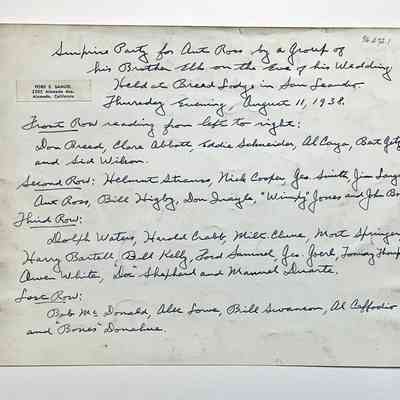 96.272.1
Surprise Party for Art Ross by a Group of
his Brother Elks on the Eve of his Wedding
FORD E. SAMUEL
Alameda, California
Held at Breed Lodge in San Leandro
Thursday Evening, August 11, 1938.
Front Row reading from left to right:
Don Breed, Clare Abbott, Eddie Schneider, Al Caya, Bart
and Sid Wilson.
Second Row: Helmut Strauss, Nick Cooper, Geo. Smith, Jim
Art Ross, Bill Higby, Don Quayle, "Windy" Jones and John
Third Row:
Dolph Waters, Harold Crabb, Milt. Cline, Mort Springer,
Harry Bartell, Bill Kelly, Ford Samuel, Geo. Tommy
Owen White, "Doc" Shepherd and Manuel Duarte.
Last Row:
Bob McDonald, Alec Lowe, Bill Swanson, Al
and "Bones" Donahue.